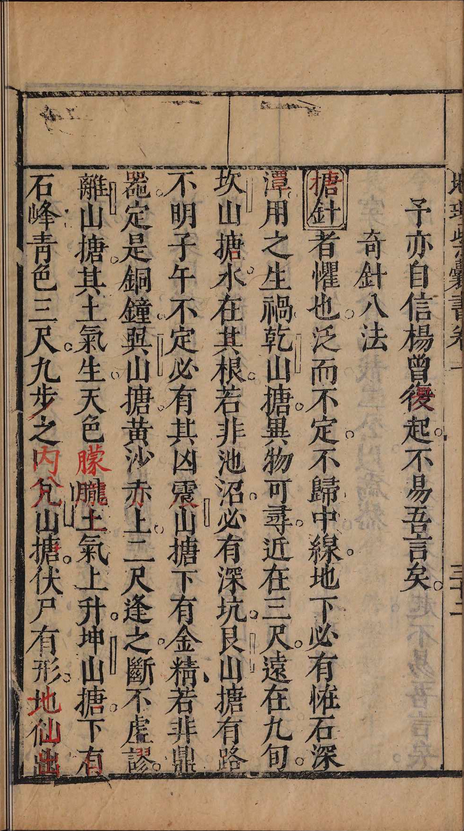 地理紫囊書卷一
三十二
予亦自信楊曾後起不易吾言矣
奇針八法
搪針者懼也泛而不定不歸中線地下必有恠石深
潭用之生禍乾山搪異物可尋近在三尺遠在九旬
坎山搪水在其根若非池沼必有深坑艮山搪有路
不明子午不定必有其凶震山搪下有金精若非鼎
噐定是銅鐘巽山搪黃沙赤土二尺逢之斷不虛謬
離山搪其土氣生天色朦朧土氣上升坤山搪下有
石峰青色三尺九步之内兊山搪伏尸有形地仙出